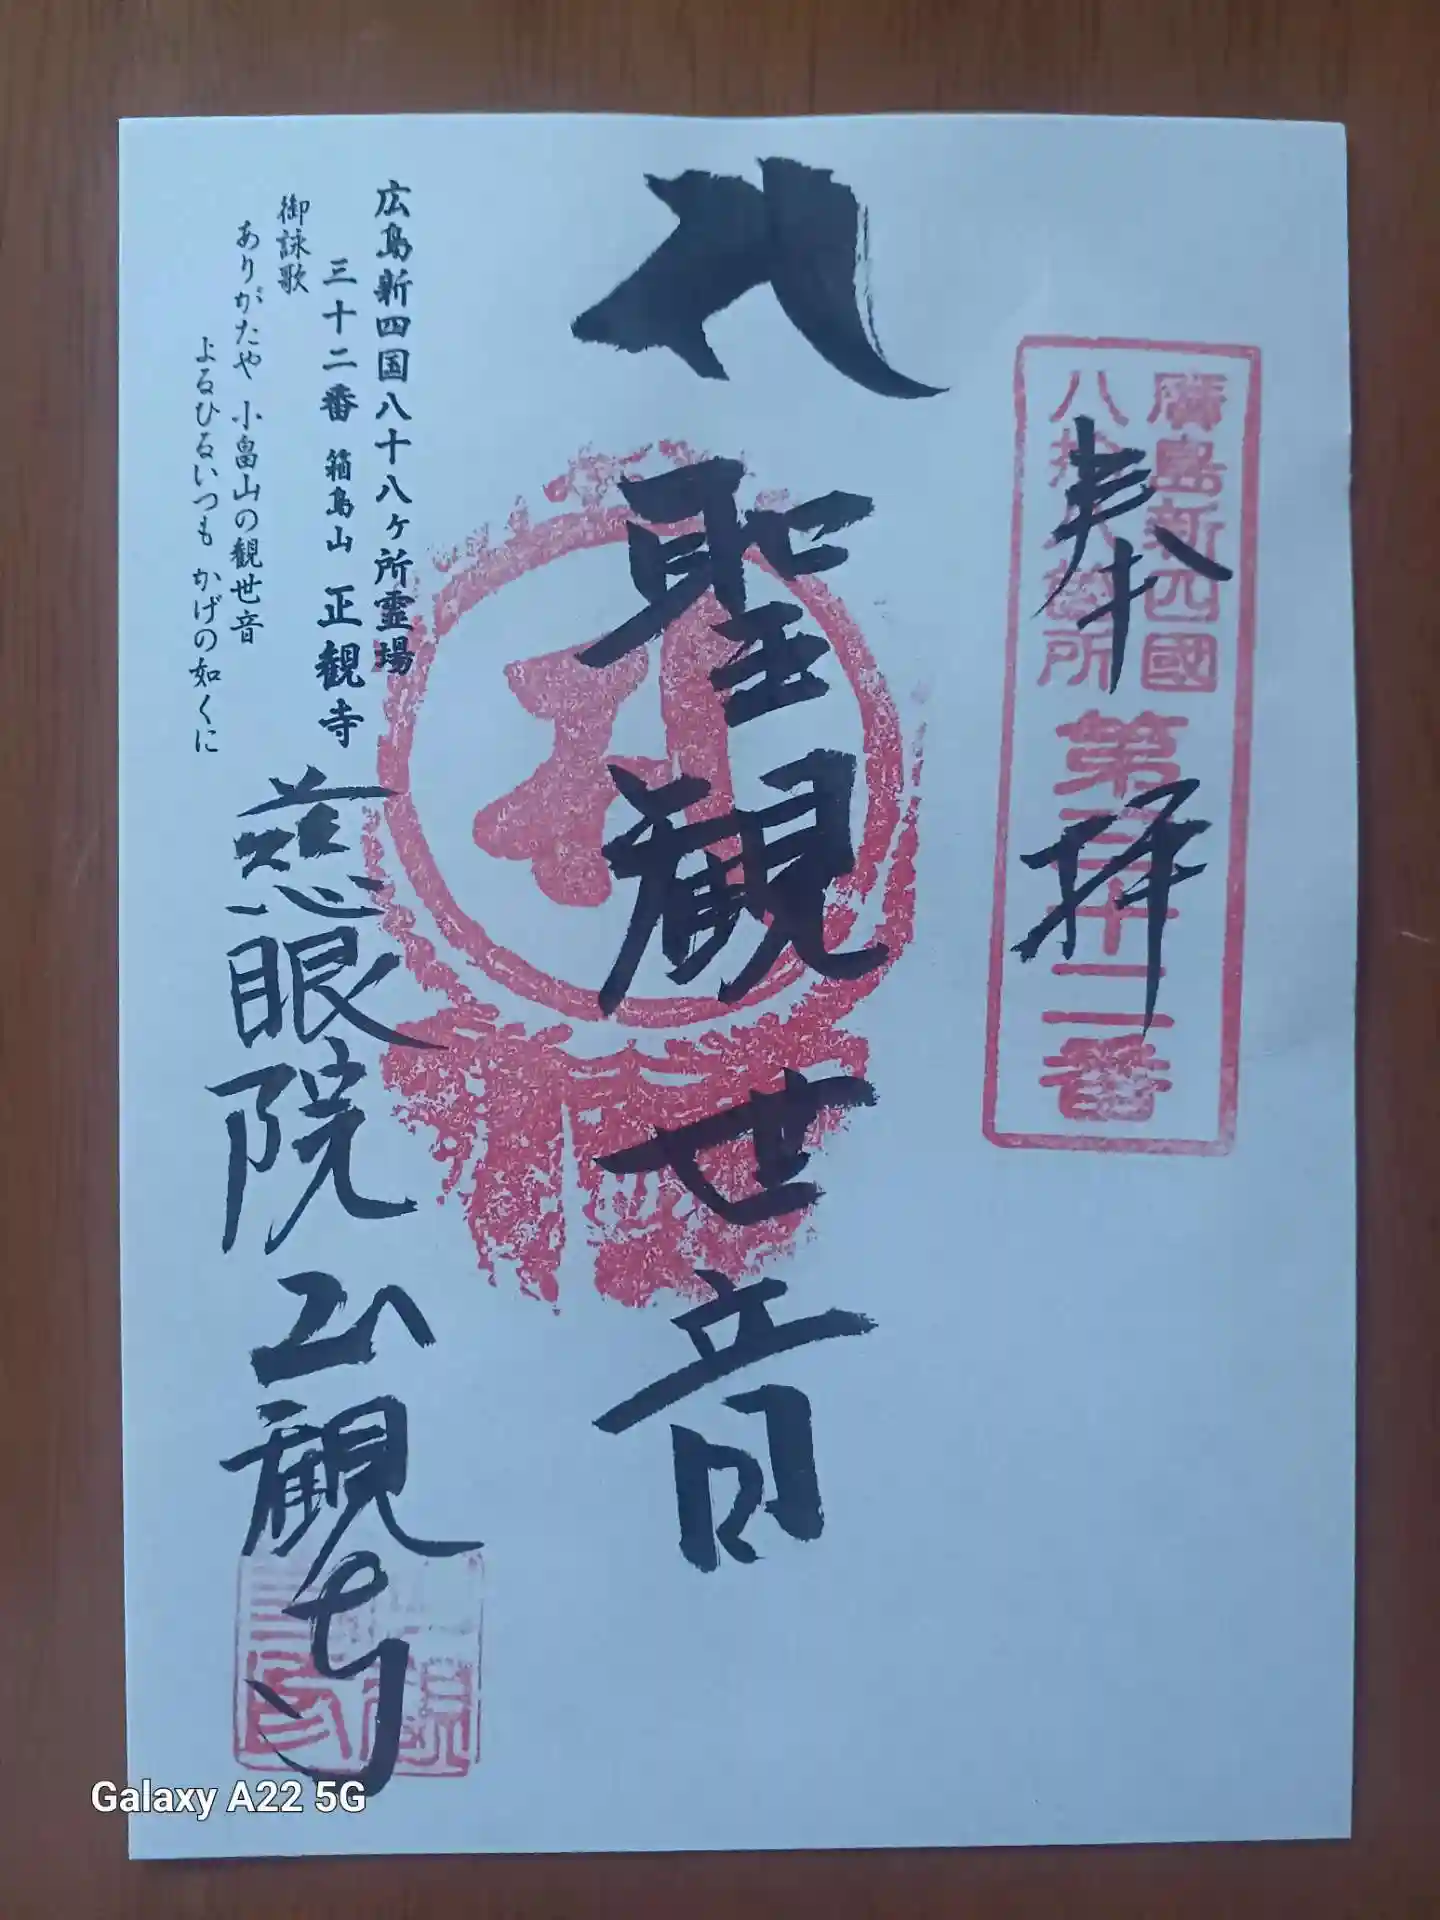 奉拝
廣島新四國
八拾八箇所
第三十二番
聖観世音
広島新四国八十八ヶ所霊場
三十二番 箱島山 正観寺
御詠歌
ありがたや 小畠山の観世音
よるひるいつも かげの如くに
慈眼院 正観寺
Galaxy A22 5G